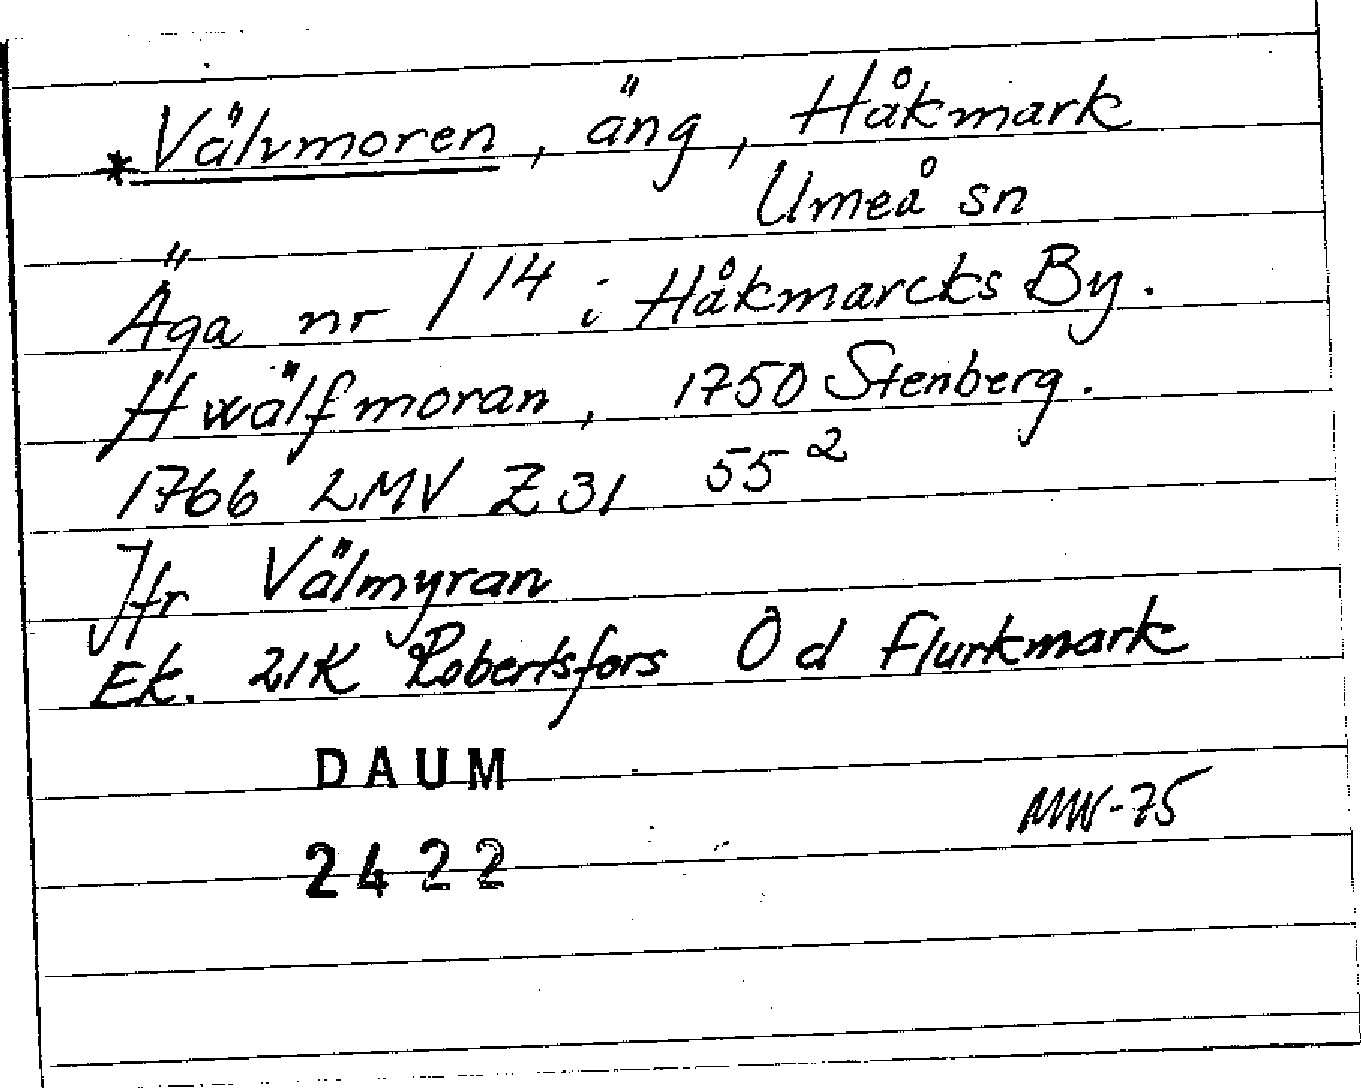 *Välvmoren, äng, Håkmark
Umeå sn
Äga nr 114 i Håkmarcks By.
Hwälfmoran, 1750 Stenberg.
1766 LMV Z31 55²
Jfr Välmyran
Ek. 21K Robertsfors 0 d Flurkmark
DAUM
MW-75
2422